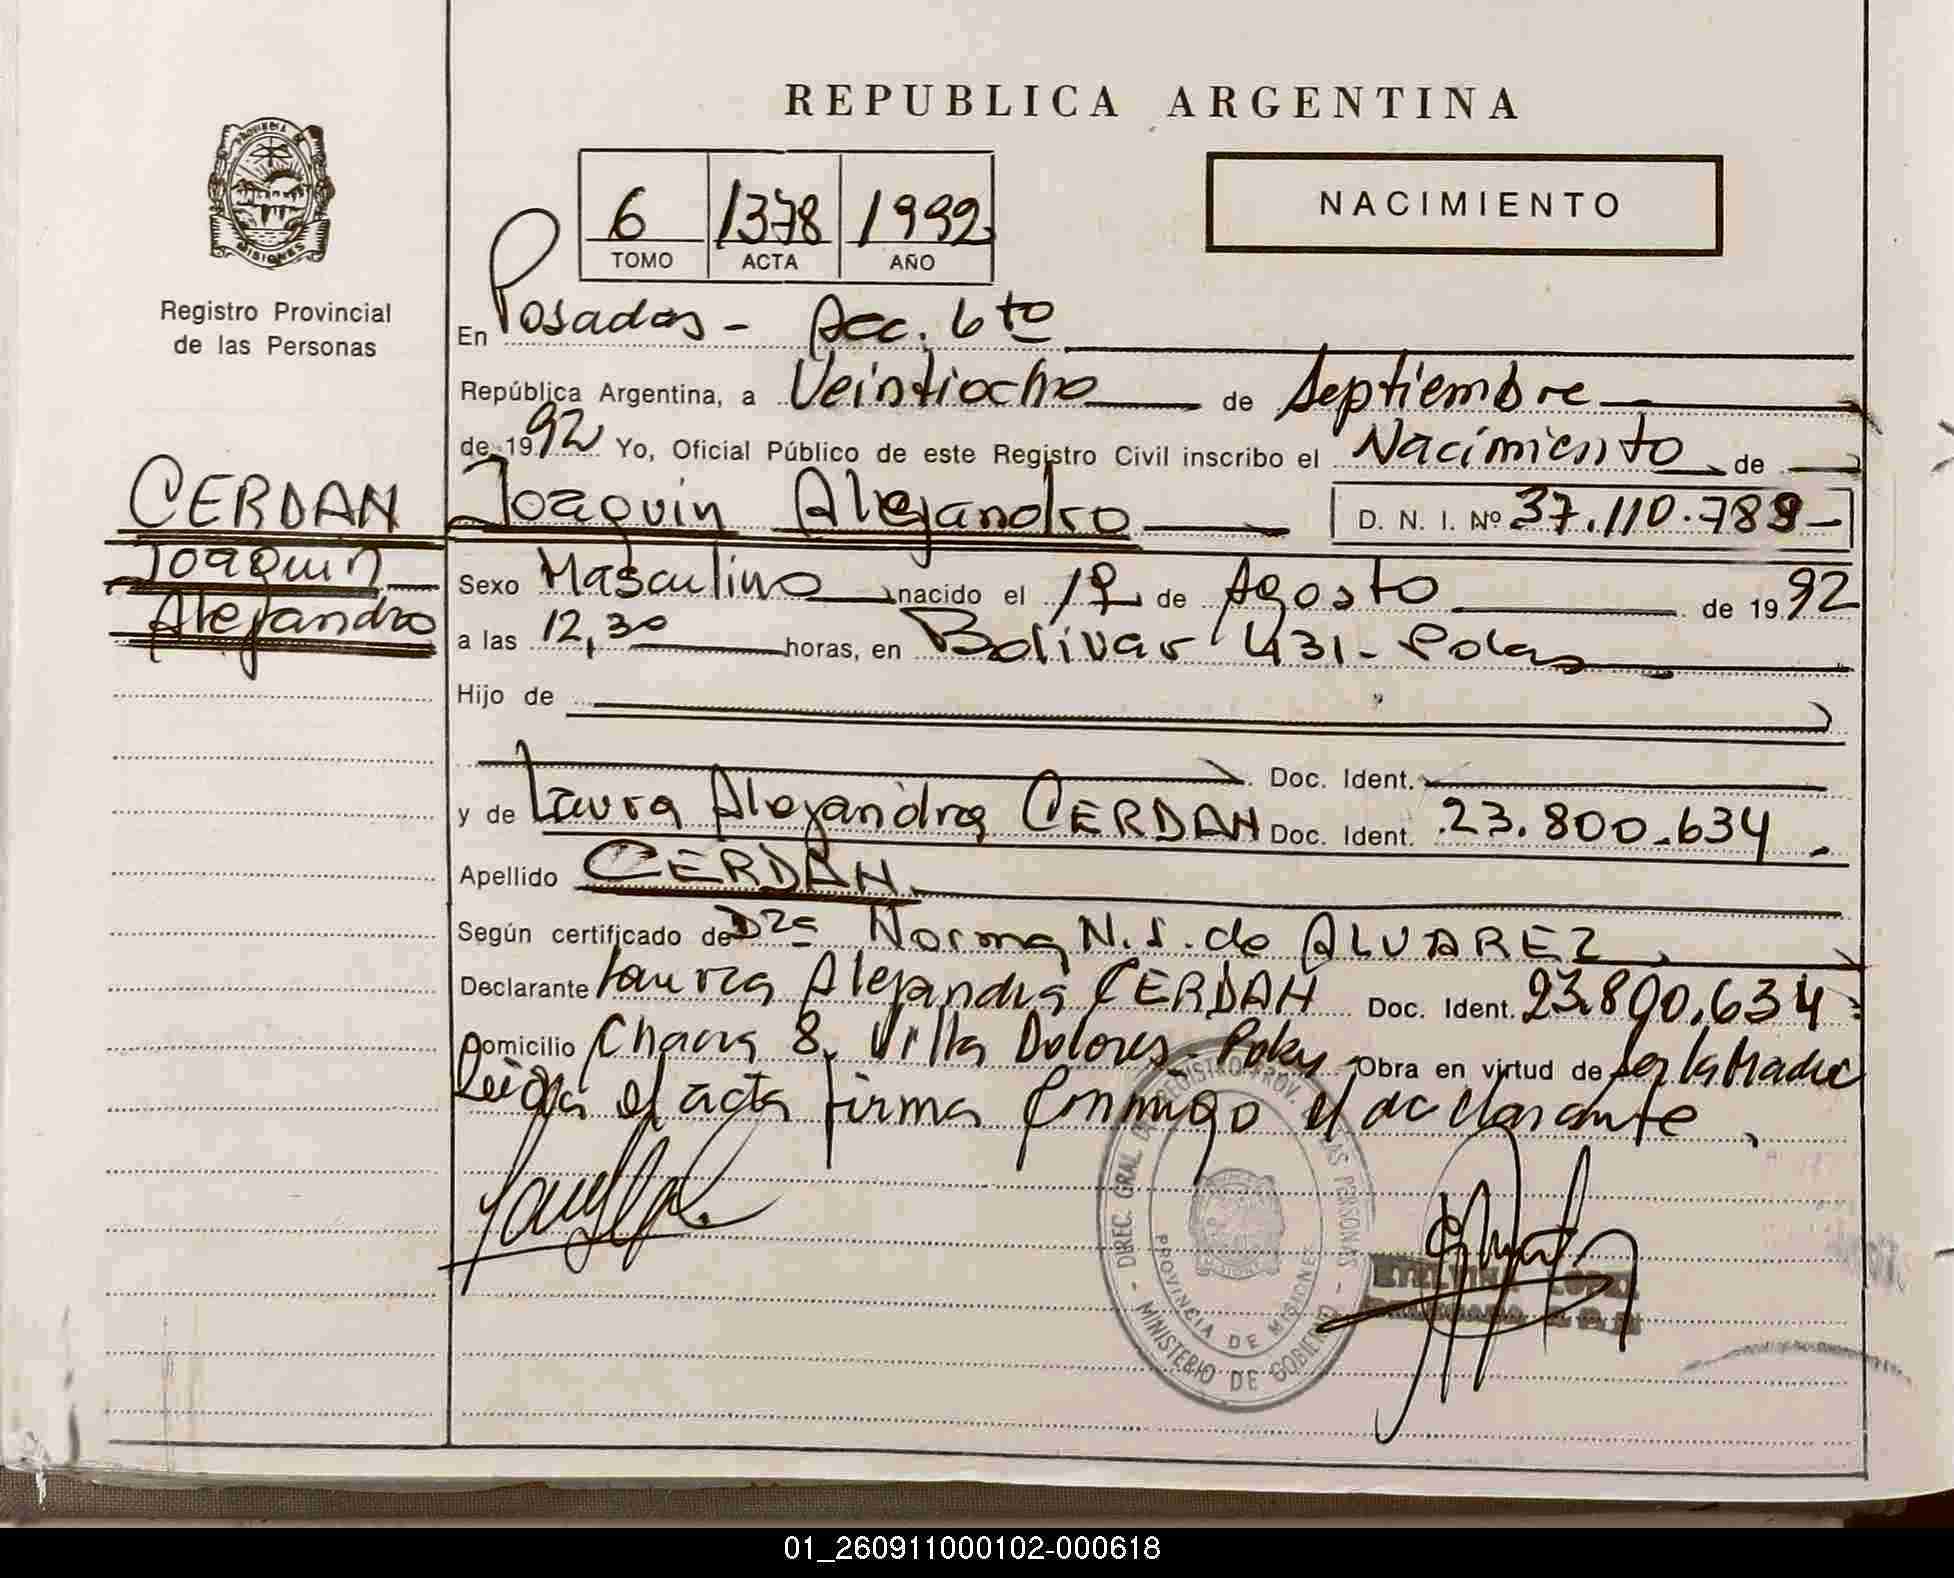 REPUBLICA ARGENTINA
NACIMIENTO
6 1378 1992
TOMO ACTA AÑO
PROVINCIA DE MISIONES
Registro Provincial
de las Personas
En Posadas - Secc. 6to
República Argentina, a Veintiocho de Septiembre
de 1992 Yo, Oficial Público de este Registro Civil inscribo el Nacimiento de
CERDAN
Joaquin
Alejandro
Joaquin Alejandro D. N. I. Nº 37.110.789-
Sexo Masculino nacido el de Agosto de 1992
a las 12,30 horas, en Bolivar 431 - Pdas
Hijo de
Doc. Ident.
y de Laura Alejandra CERDAN Doc. Ident. 23.800.634
Apellido CERDAN
Según certificado de Dra Norma N. S. de ALVAREZ
Declarante Laura Alejandra CERDAN Doc. Ident. 23.800.634
Domicilio Chacra 8, Villa Dolores - Pdas Obra en virtud de ser la Madre
Leida el acta firma conmigo el declarante
DIREC. GRAL. DE REGISTRO PROV. DE LAS PERSONAS
PROVINCIA DE MISIONES
MINISTERIO DE GOBIERNO
01_260911000102-000618